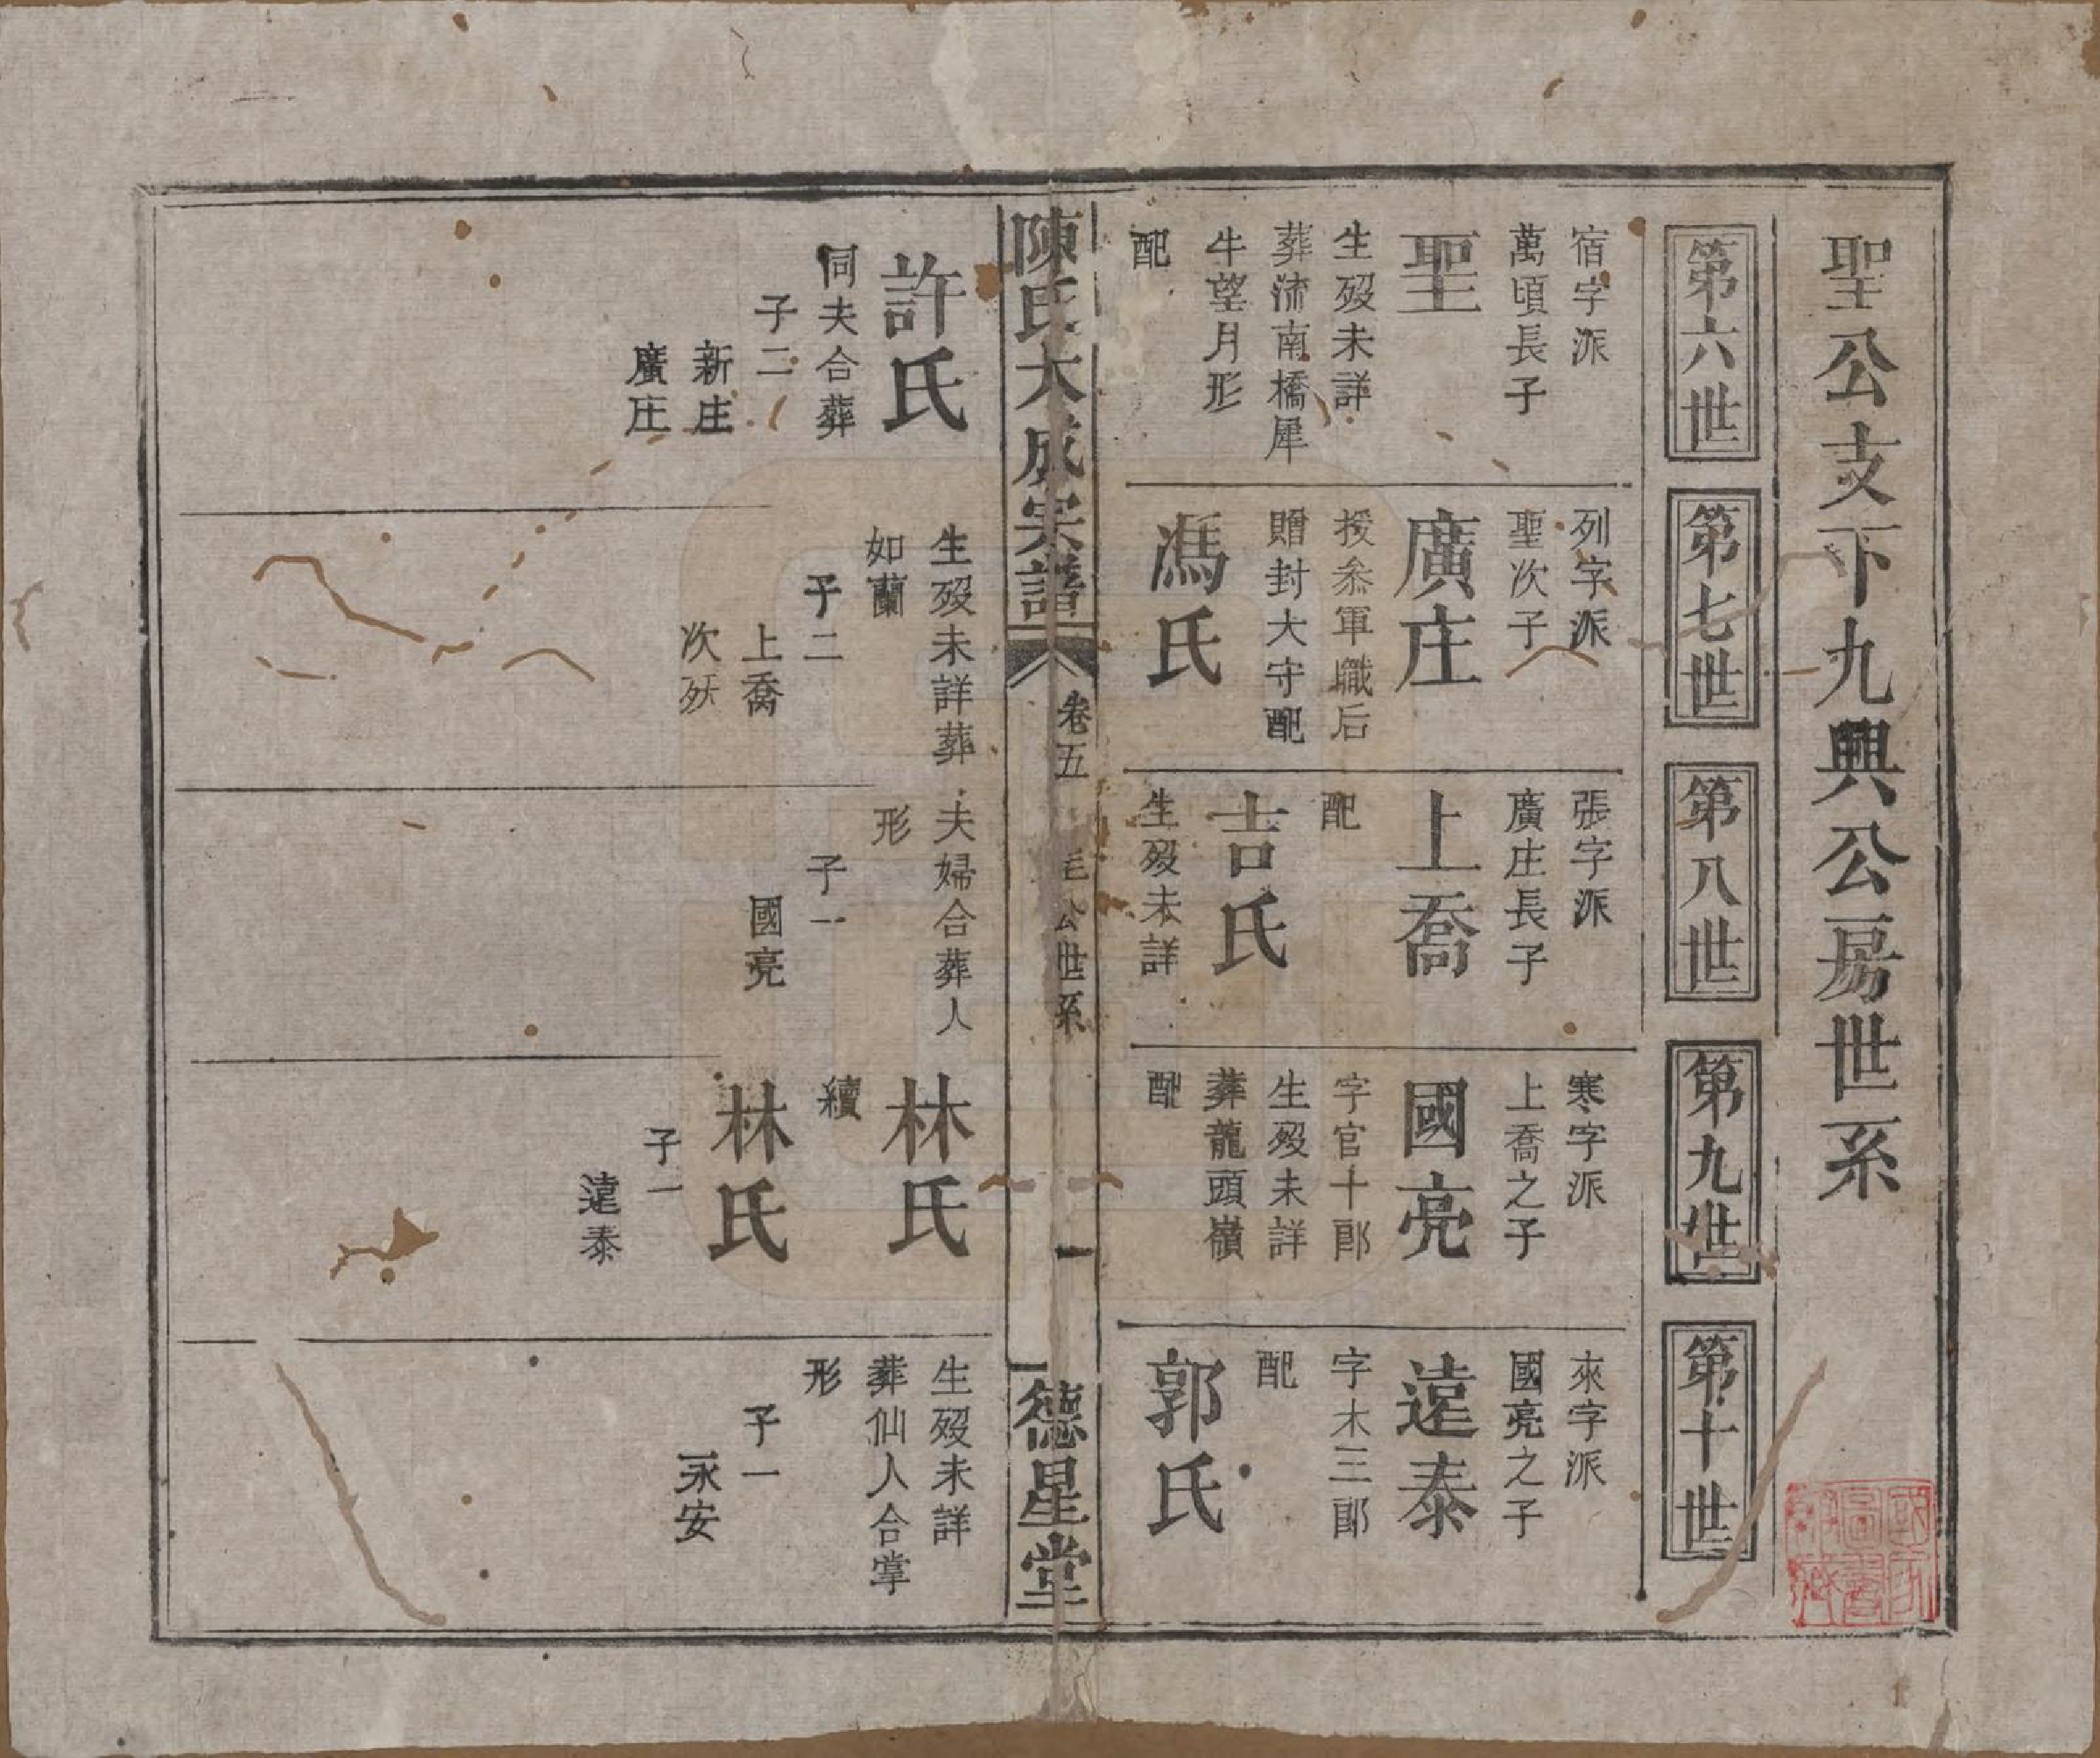 聖公支下九興公房世系
第六世
第七世
第八世
第九世
第十世
宿字派
萬頃長子
聖
生歿未詳
葬沛南橋犀
牛望月形
配
列字派
聖次子
廣庄
授叅軍職后
贈封大守配
馮氏
張字派
廣庄長子
上喬
配
吉氏
生歿未詳
寒字派
上喬之子
國亮
字官十郎
生歿未詳
葬龍頭嶺
配
來字派
國亮之子
遠泰
字木三郎
配
郭氏
陳氏大成宗譜
卷五
公世系
一
德星堂
許氏
同夫合葬
子二
新庄
廣庄
生歿未詳葬
如蘭
子二
上喬
次殀
夫婦合葬人
形
子一
國亮
林氏
續
林氏
子一
遠泰
生歿未詳
葬仙人合掌
形
子一
永安